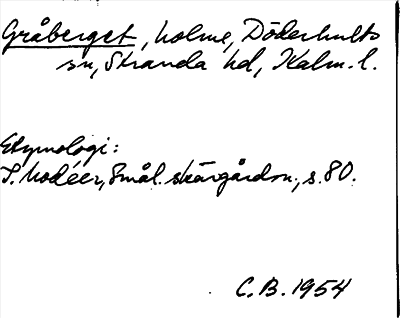 Gråberget, holme, Döderhults
sn, Stranda hd, Kalm. l.
Etymologi:
I. Modéer, Smål. skärgårdsn., s. 80.
C.B. 1954